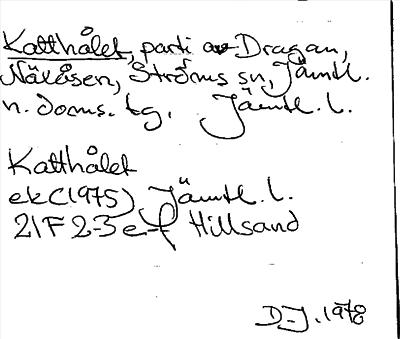 Katthålet, parti av Dragan,
Näkåsen, Ströms sn, Jämtl.
n. doms. tg. Jämtl. l.
Katthålet
ek(1975) Jämtl. l.
21F 2-3 e-f Hillsand
D-J. 1978